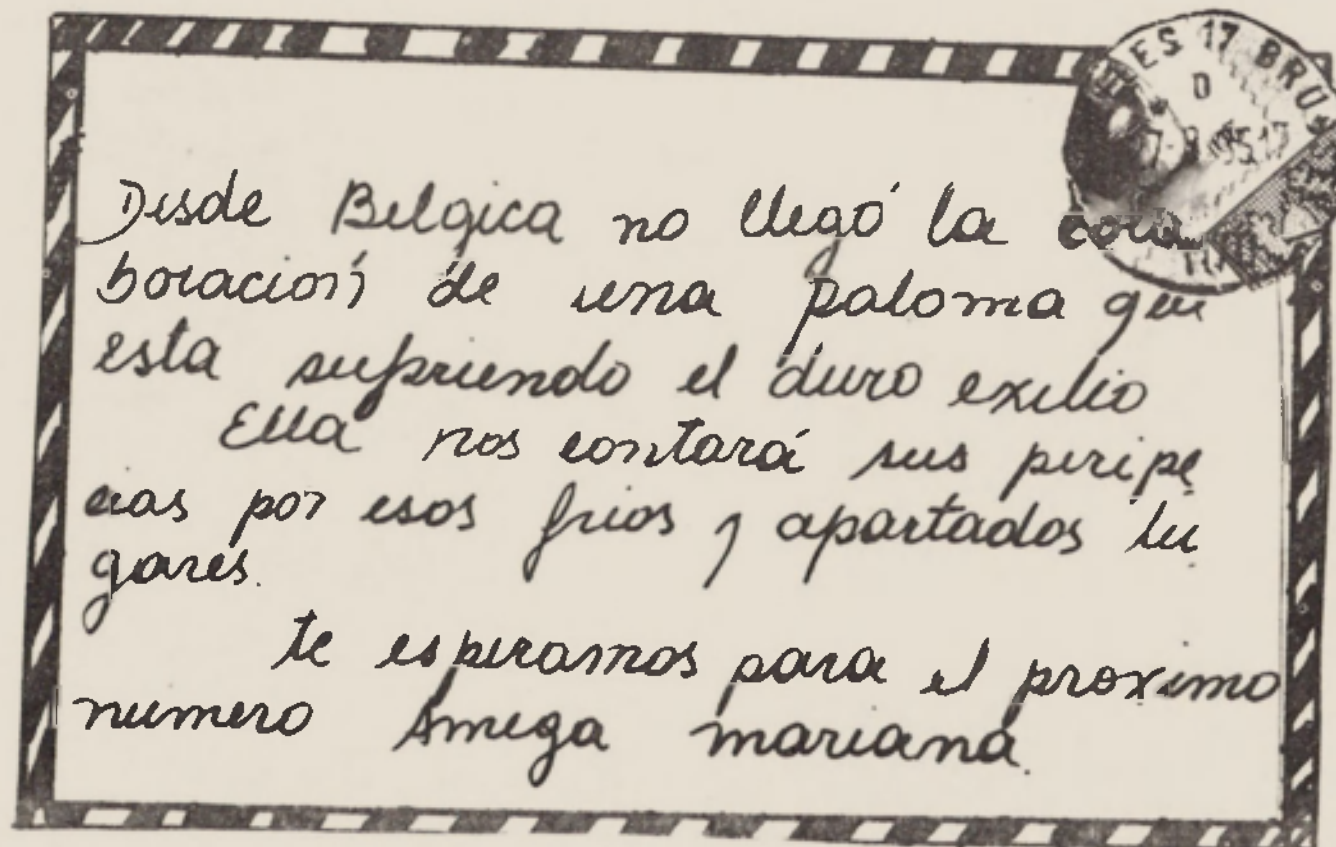 Desde Belgica no llegó la cola
boración de una paloma que
esta sufriendo el duro exilio
Ella nos contará sus peripe
cias por esos frios y apartados lu
gares.
te esperamos para el proximo
numero Amiga mariana.
ES 17 BRU
D